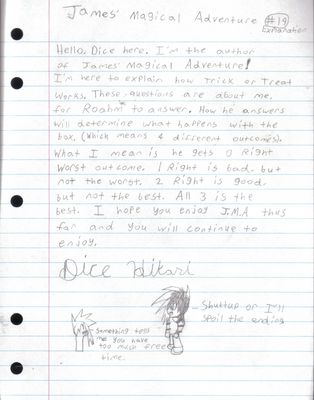 James' Magical Adventure #19
Explanation
Hello, Dice here. I'm the author
of James' Magical Adventure!
I'm here to explain how Trick or Treat
works. These questions are about me,
for Roahm to answer. How he answers
will determine what happens with the
box, (which means 4 different outcomes).
What I mean is he gets 0 Right
worst outcome. 1 Right is bad, but
not the worst. 2 Right is good,
but not the best. All 3 is the
best. I hope you enjoy J.M.A thus
far and you will continue to
enjoy.
Dice Hikari
Something tells
me you have
too much free
time.
- Shuttup or I'll
spoil the ending